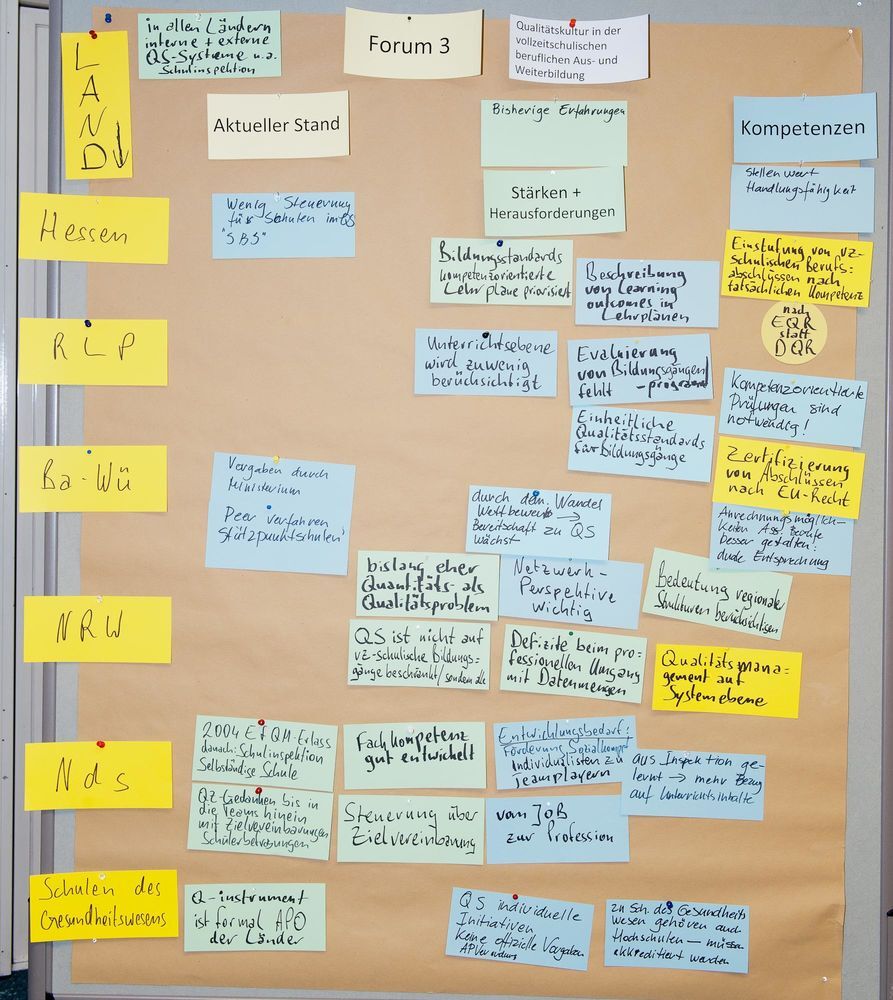 LAND
in allen Ländern
interne + externe
QS-Systeme u.a.
Schulinspektion
Forum 3
Qualitätskultur in der
vollzeitschulischen
beruflichen Aus- und
Weiterbildung
Aktueller Stand
Bisherige Erfahrungen
Kompetenzen
Stärken +
Herausforderungen
Stellenwert
Handlungsfähigkeit
Hessen
Wenig Steuerung
für Schulen im QS
"SBS"
Bildungsstandards
kompetenzorientierte
Lehrpläne priorisiert
Beschreibung
von learning
outcomes in
Lehrplänen
Einstufung von vz-
schulischen Berufs=
abschlüssen nach
tatsächlichen Kompetenz
nach
EQR
statt
DQR
RLP
Unterrichtsebene
wird zuwenig
berücksichtigt
Evaluierung
von Bildungsgängen
fehlt
Kompetenzorientierte
Prüfungen sind
notwendig!
Einheitliche
Qualitätsstandards
für Bildungsgänge
Ba-Wü
Vorgaben durch
Ministerium
Peer verfahren
Stützpunktschulen
durch dem. Wandel
Wettbewerb →
Bereitschaft zu QS
wächst
Zertifizierung
von Abschlüssen
nach EU-Recht
Anrechnungsmöglich-
keiten Ass. Berufe
besser gestalten:
duale Entsprechung
bislang eher
Quantitäts- als
Qualitätsproblem
Netzwerk-
Perspektive
wichtig
Bedeutung regionaler
Strukturen berücksichtigen
NRW
QS ist nicht auf
vz-schulische Bildungs=
gänge beschränkt/sondern alle
Defizite beim pro-
fessionellen Umgang
mit Datenmengen
Qualitätsmana=
gement auf
Systemebene
Nds
2004 EFQM-Erlass
danach: Schulinspektion
Selbständige Schule
Fachkompetenz
gut entwickelt
Entwicklungsbedarf:
Förderung Sozialkomp.
Individualisten zu
Teamplayern
aus Inspektion ge-
lernt → mehr Bezug
auf Unterrichtsinhalte
QZ-Gedanken bis in
die Teams hinein
mit Zielvereinbarungen
Steuerung über
Zielvereinbarung
vom JOB
zur Profession
Schulen des
Gesundheitswesens
Q-instrument
ist formal APO
der Länder
QS individuelle
Initiativen
Keine offizielle Vorgaben
zu Sch. des Gesundheits
wesen gehören auch
Hochschulen — müssen
akkreditiert werden